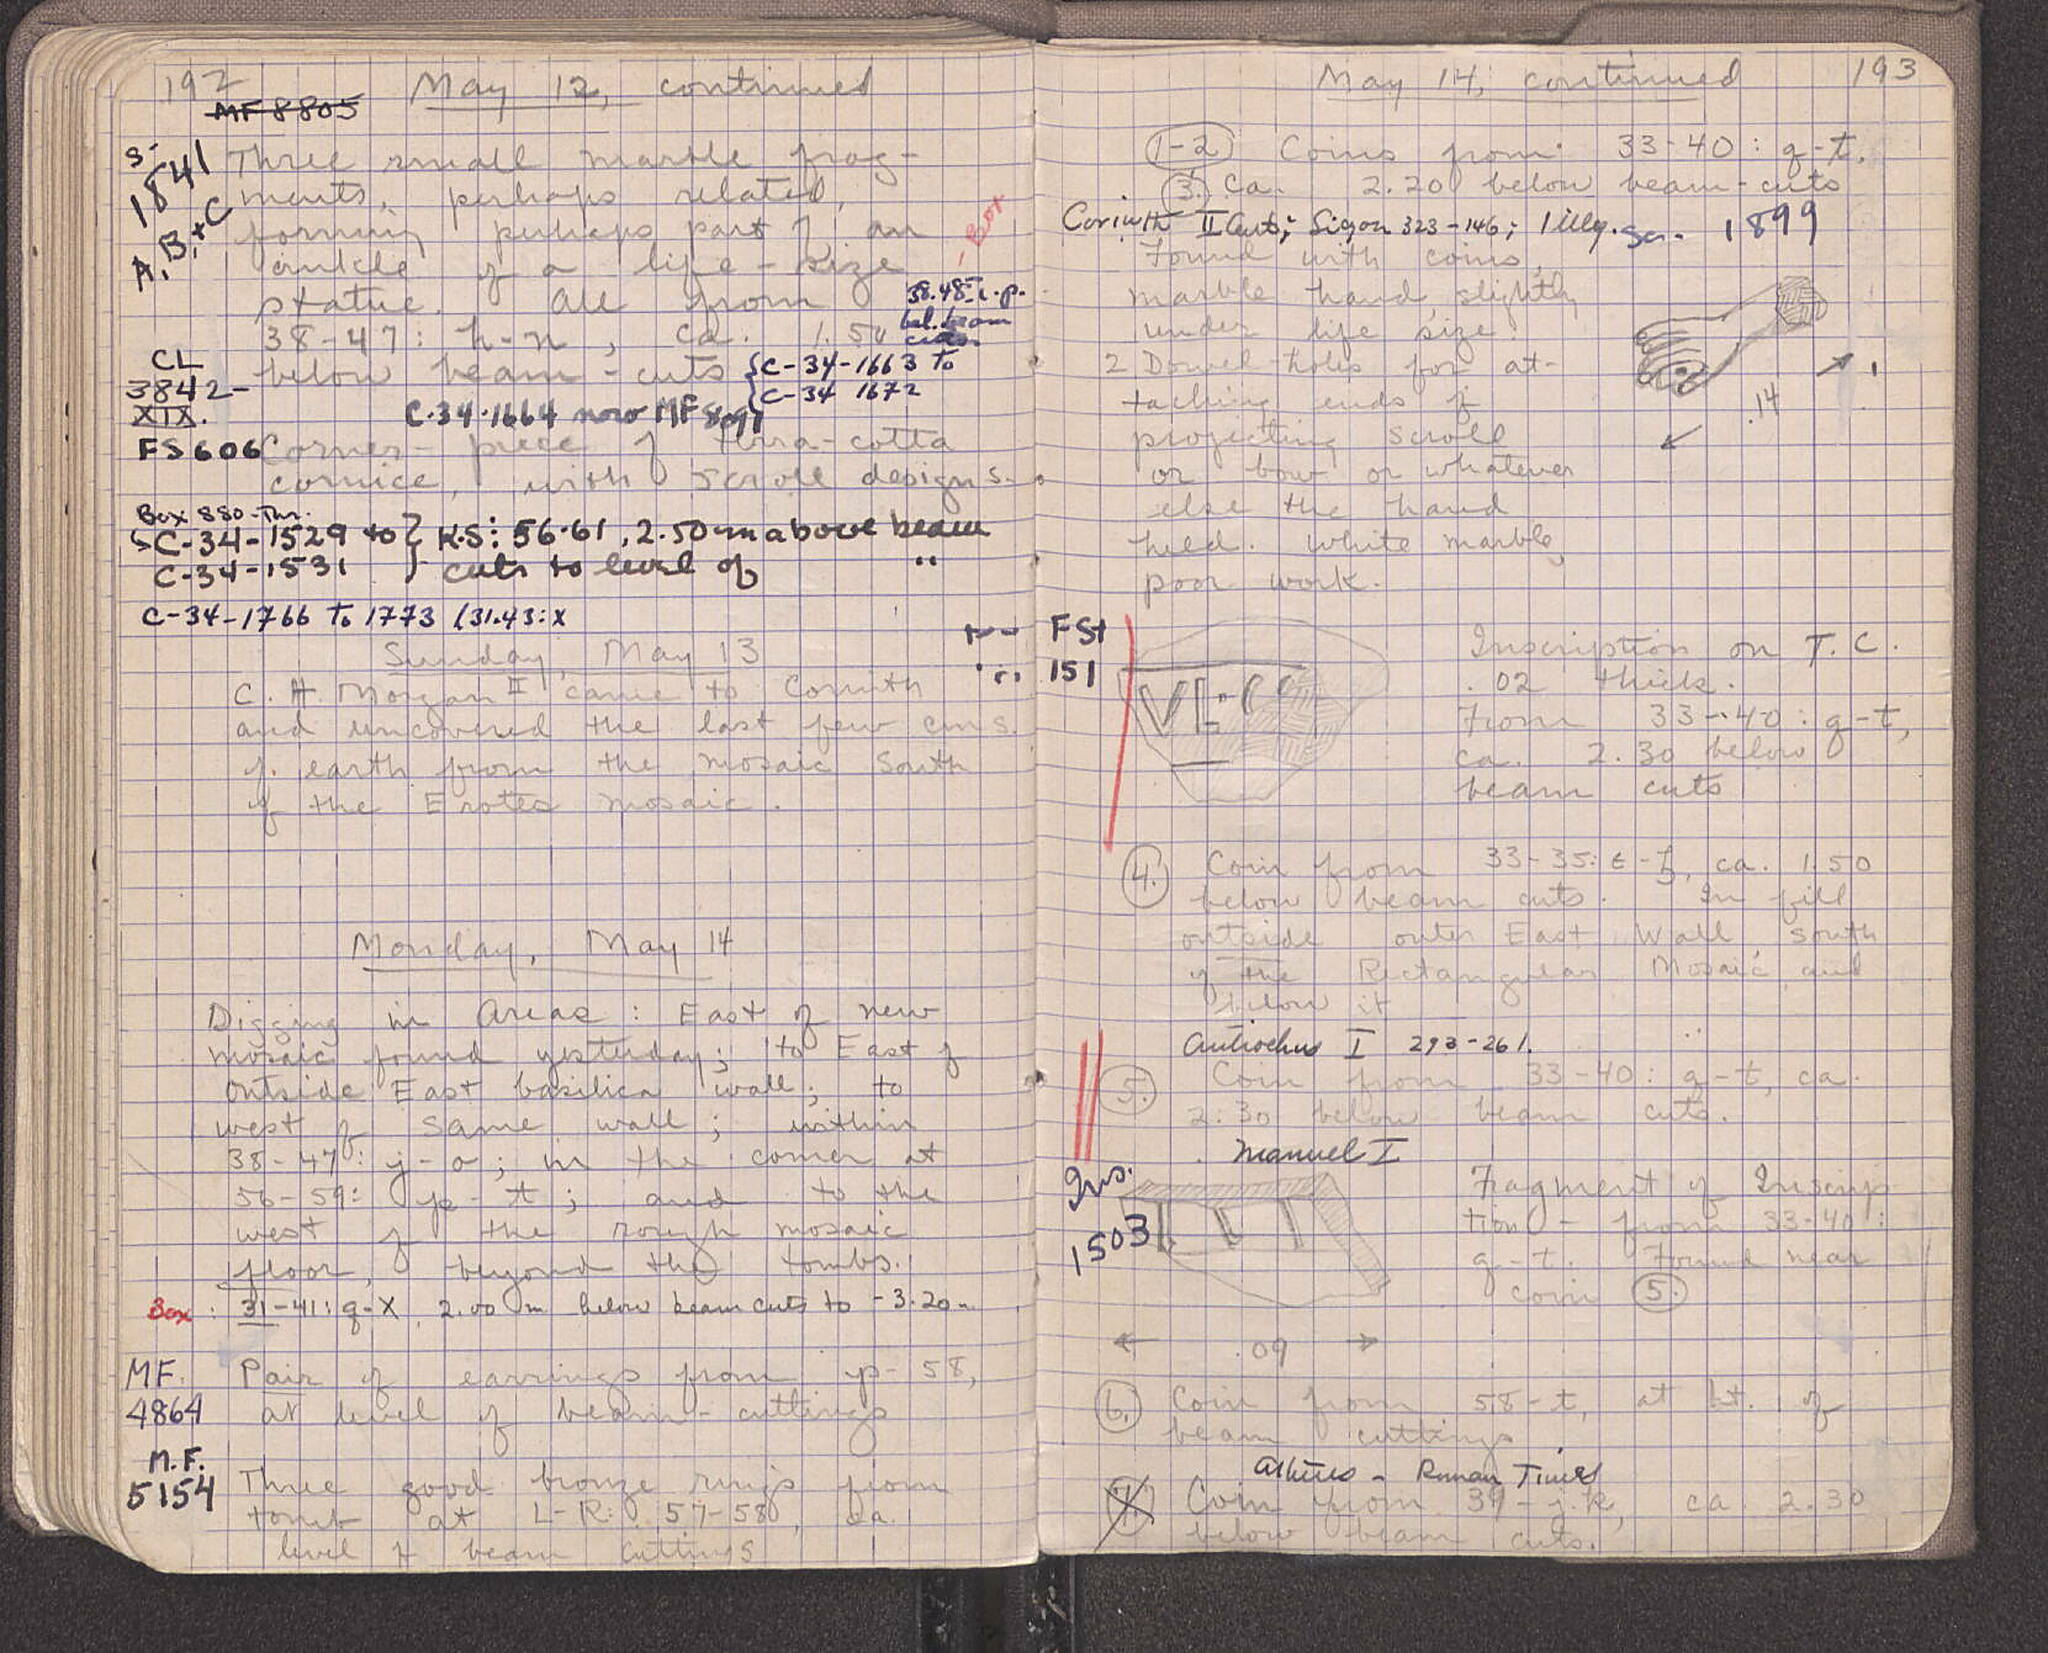 192
May 12, continued
MF 8805
S-
1841
A. B. + C
Three small marble frag-
ments, perhaps related,
forming perhaps part of an
ankle of a life-size
statue. All from
- Box
38-47: h-n, ca. 1.50
below beam-cuts
CL
3842-
XIX.
{C-34-1663 to
{C-34 1672
C-34-1664 now MF
FS 606
Corner-piece of terra-cotta
cornice, with scroll designs.
Box 880
C-34-1529 to } R.S: 56-61, 2.50 m above beam
C-34-1531 } cuts to level of "
C-34-1766 To 1773 (31.43:X
Sunday, May 13
C. H. Morgan II came to Corinth
and uncovered the last few cms.
of earth from the mosaic South
of the Erotes mosaic.
Monday, May 14
Digging in Areas: East of new
mosaic found yesterday; to East of
outside East basilica wall; to
west of same wall; within
38-47: j-o; in the corner at
56-59: p-t; and to the
west of the rough mosaic
floor, beyond the tombs.
Box: 31-41: q-X, 2.00 m below beam cuts to -3.20 m
MF.
4864
Pair of earrings from p-58,
at level of beam-cuttings
M.F.
5154
Three good bronze rings from
tomb at L-R: 57-58, ca.
level of beam cuttings
193
May 14, continued
1-2 Coins from 33-40: q-t.
3. ca. 2.20 below beam-cuts
Corinth II Cents; Sigon 323-146; 1 illeg.
1899
Found with coins,
marble hand, slightly
under life size.
2 Dowel-holes for at-
taching ends of
projecting scroll
or bow or whatever
else the hand
held. White marble,
poor work.
.14
FSt
151
VE
Inscription on T.C.
.02 thick.
From 33-40: q-t,
ca. 2.30 below
beam cuts
4. Coin from 33-35: ca. 1.50
below beam cuts. In fill
outside outer East Wall, south
of the Rectangular Mosaic and
below it
Antiochus I 293-261.
5. Coin from 33-40: q-t, ca.
2.30 below beam cuts.
Manuel I
Ins.
1503
Fragment of Inscrip
tion - from 33-40:
q-t. Found near
coin 5.
.09
6. Coin from 58-t, at ht. of
beam cuttings
Athens - Roman Times
7. Coin from 39-j.k, ca. 2.30
below beam cuts.